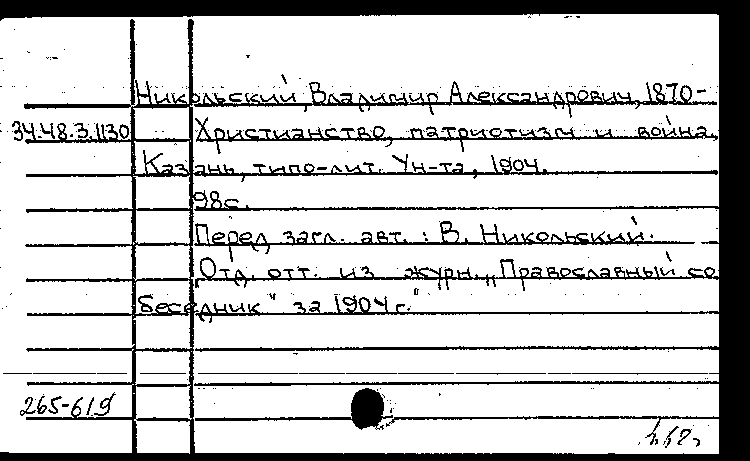 Никольский, Владимир Александрович, 1870-
34.48.3.1130 Христианство, патриотизм и война.
Казань, типо-лит. Ун-та, 1904.
98с.
Перед загл. авт.: В. Никольский.
Отд. отт. из журн. „Православный со
беседник" за 1904 г."
265-619